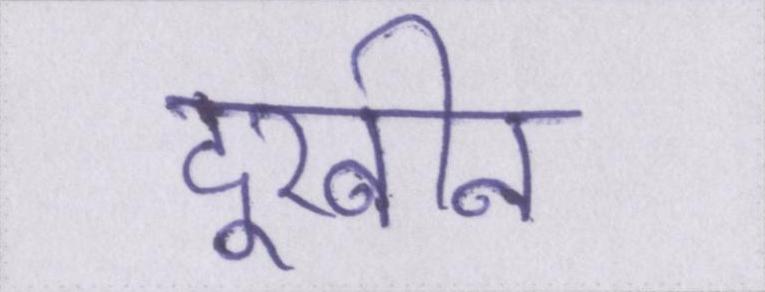 दूरबीन